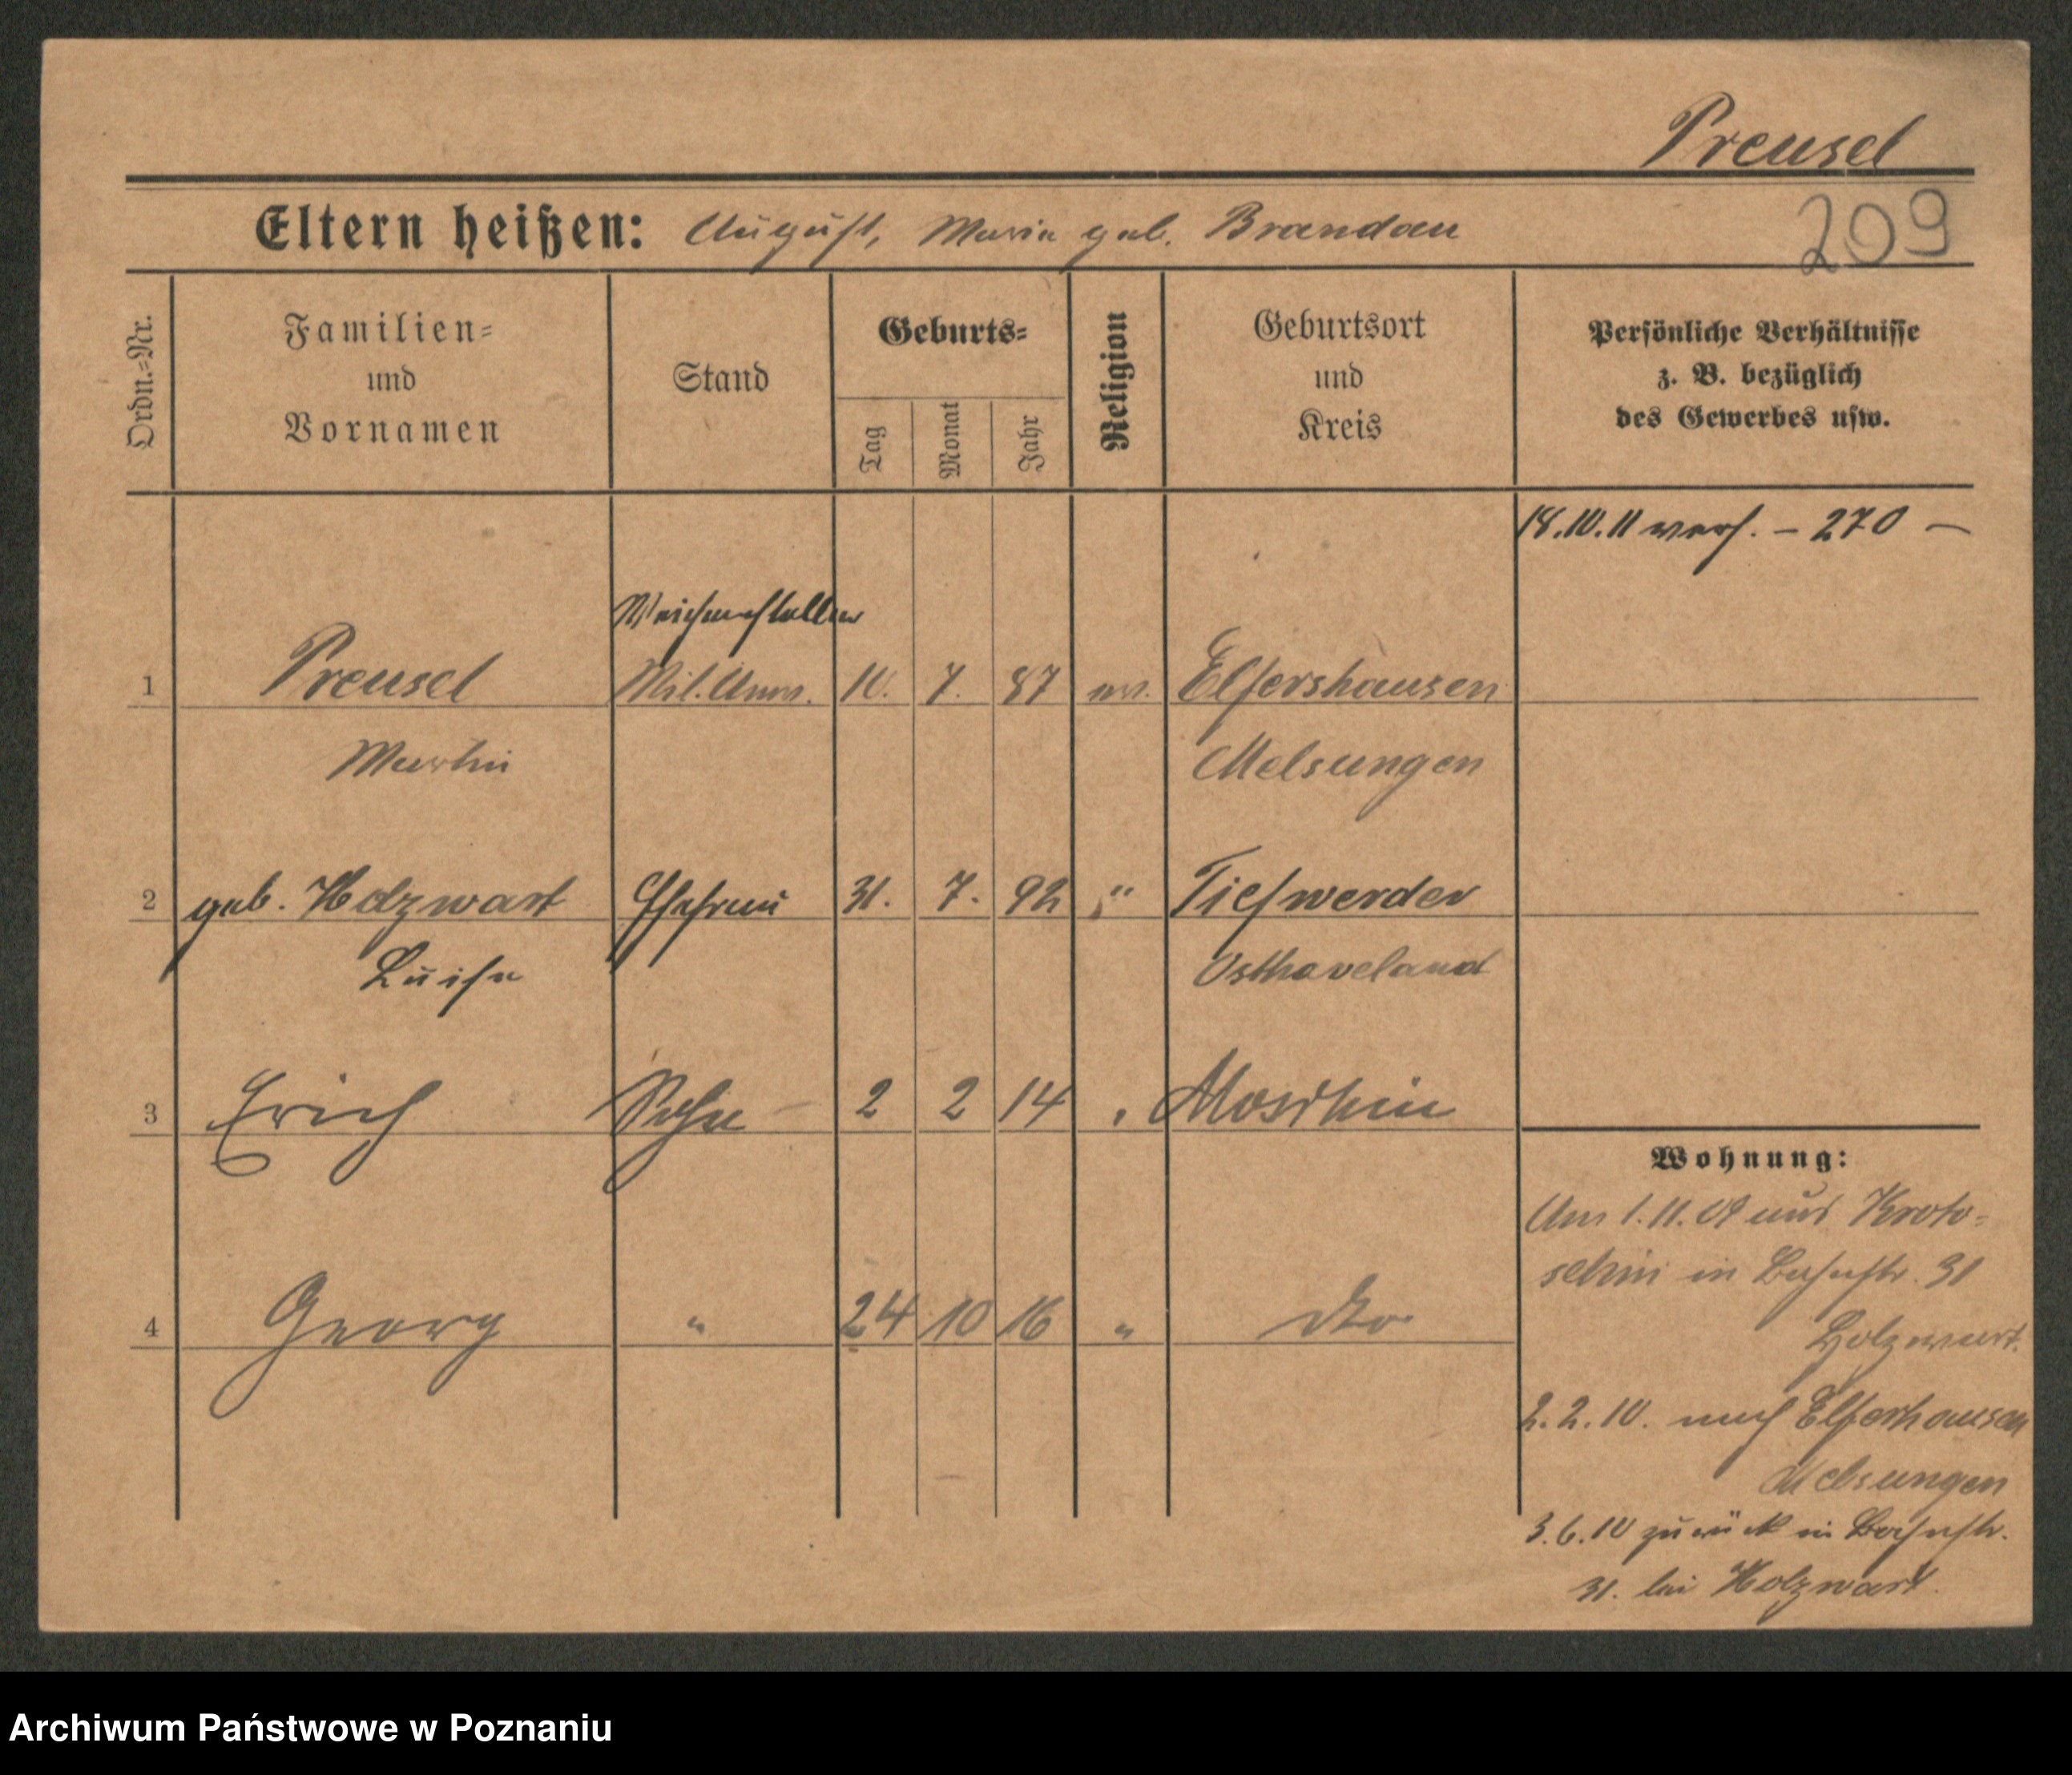 Preusel
Eltern heißen: August, Maria geb. Brandau
209
Ordn.=Nr.
Familien=
und
Vornamen
Stand
Geburts=
Tag
Monat
Jahr
Religion
Geburtsort
und
Kreis
Persönliche Verhältnisse
z. B. bezüglich
des Gewerbes usw.
18.10.11 verh. – 270 –
Weichensteller
1 Preusel Mil. Anw. 10. 7. 87 ev. Elfershausen
Martin Melsungen
2 geb. Holzwart Ehefrau 31. 7. 92 " Tiefwerder
Luise Osthaveland
3 Erich Sohn 2 2 14 " Moschin
4 Georg " 24 10 16 " dto
Wohnung:
Am 1.11.09 aus Kroto=
schin in Bahnstr. 31
Holzwart.
2.2.10. nach Elferhausen
Melsungen
3.6.10 zurück in Bahnstr.
31. bei Holzwart.
Archiwum Państwowe w Poznaniu